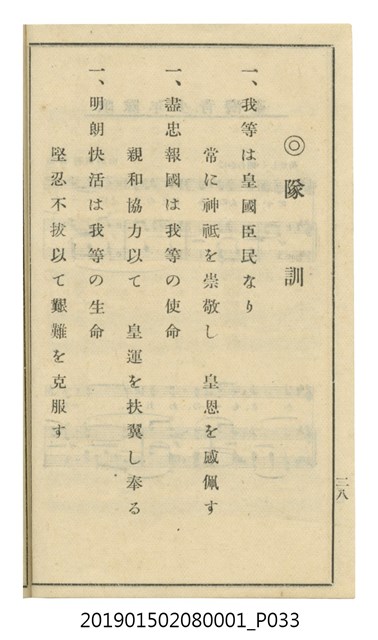 ◎隊訓
一、我等は皇國臣民なり
常に神祇を崇敬し　皇恩を感佩す
一、盡忠報國は我等の使命
親和協力以て　皇運を扶翼し奉る
一、明朗快活は我等の生命
堅忍不拔以て艱難を克服す
三八
201901502080001_P033